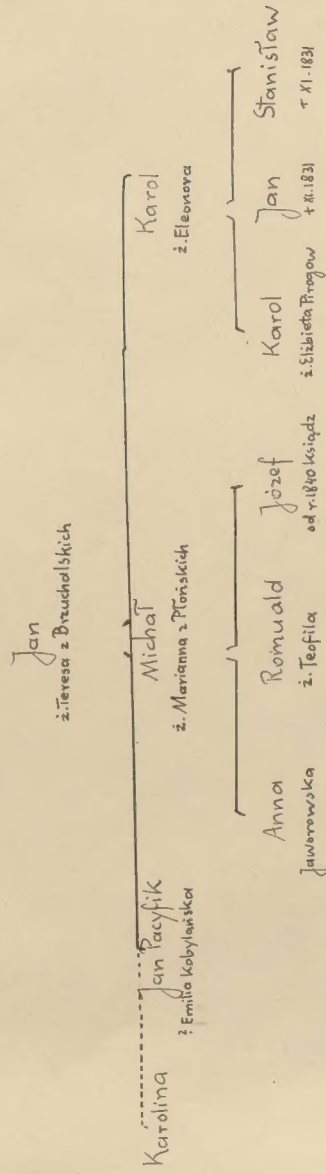 Jan
ż. Teresa z Brzucholskich
Karolina
Jan Pacyfik
? Emilia Kobylańska
Michał
ż. Marianna z Płońskich
Karol
ż. Eleonora
Anna
Jaworowska
Romuald
ż. Teofila
Józef
od r. 1840 ksiądz
Karol
ż. Elżbieta Pirogow
Jan
+ XI. 1831
Stanisław
+ XI. 1831